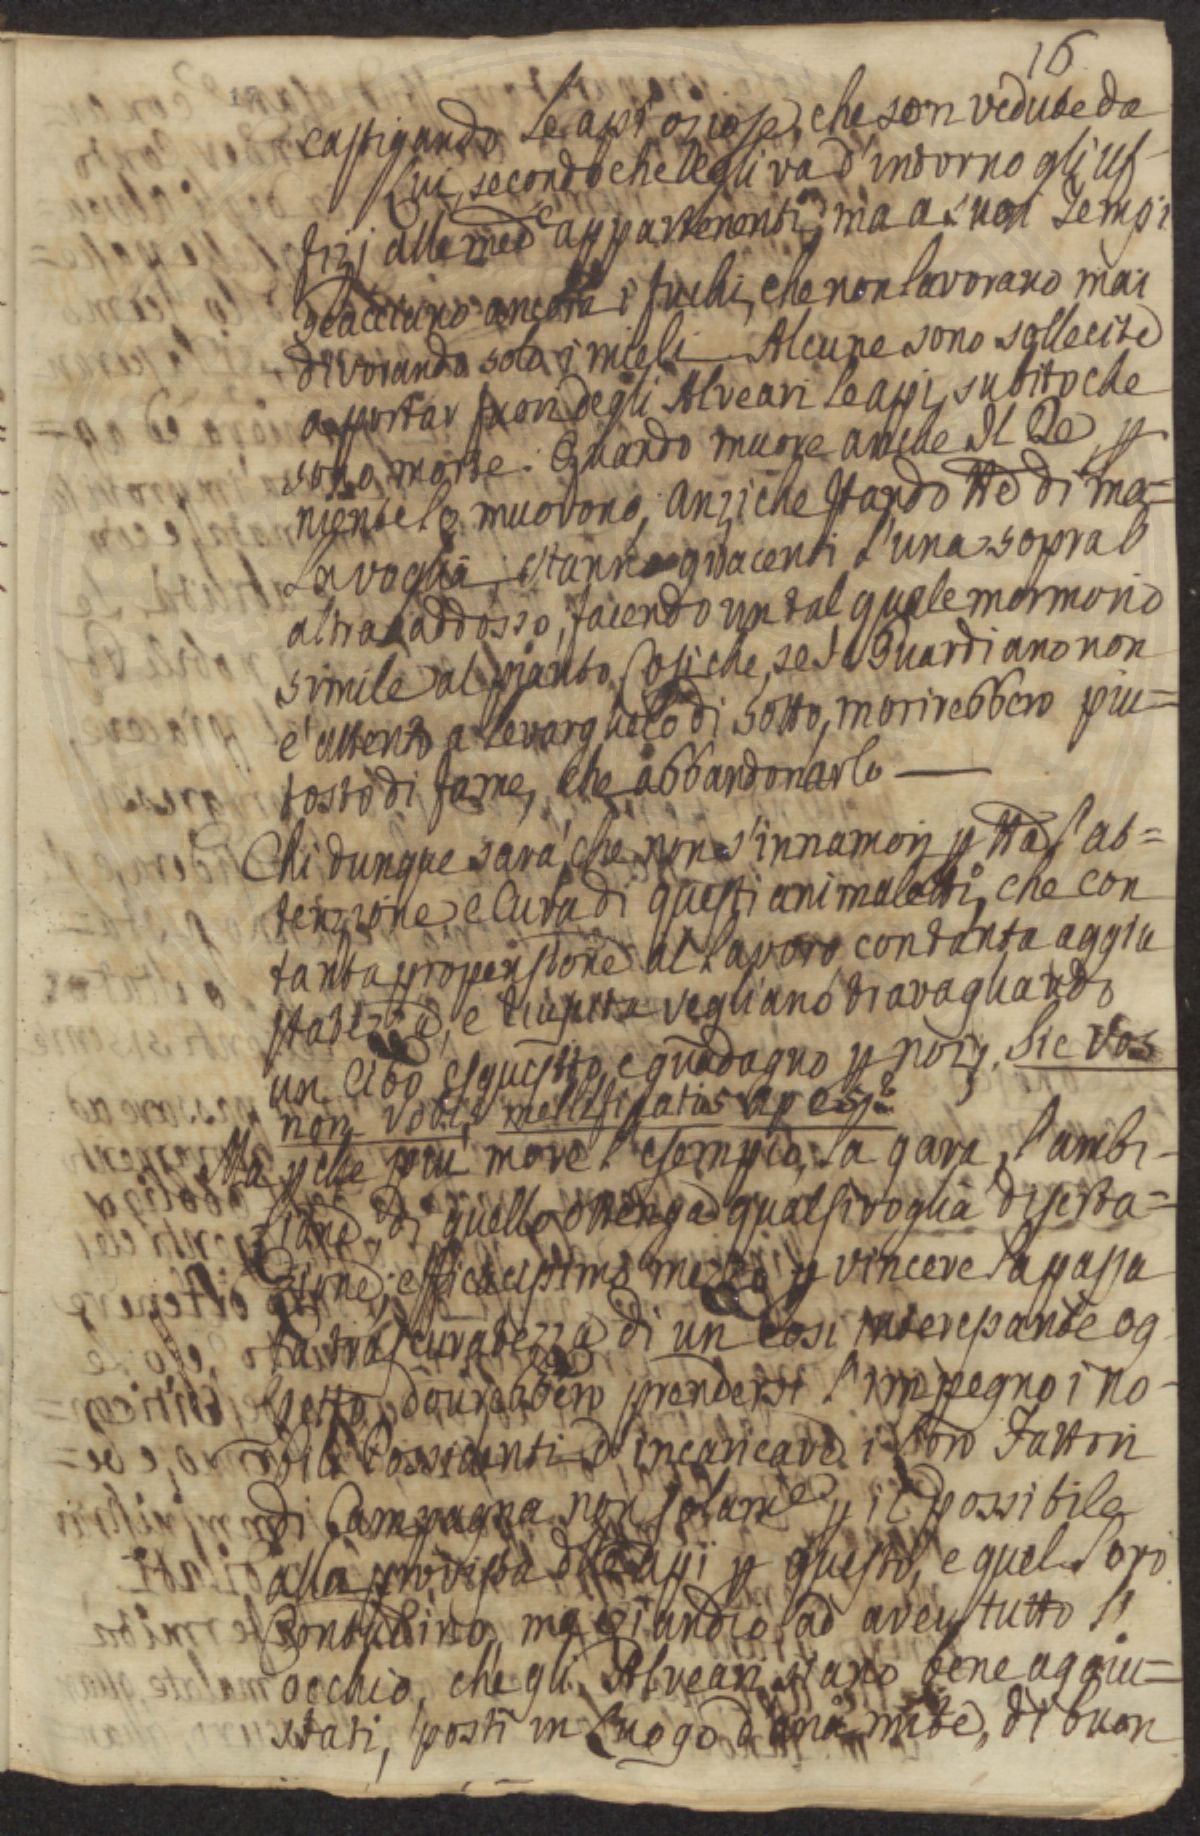 16
castigando le api oziose, che son vedute da
Lui, secondo che legli va d'intorno gli uf-
fizj alle med.e appartenenti; ma a suoi Tempi
scacciano ancora i fuchi, che non lavorano mai
divorando solo i mieli. Alcune sono sollecite
a portar fuori degli Alveari le api, subito che
sono morte. Quando muore anche Il Re, p
niente lo muovono, anzi che stando tte di ma=
la voglia, stanno giacenti l'una sopra l
altra addosso, facendo un tal quale mormorio
simile al pianto. Cosiche, se il Guardiano non
è attento a levarglielo di sotto, morirebbero piu=
tosto di fame, che abbandonarlo
Chi dunque sarà, che non s'innamori p tta l'at=
tenzione e cura di questi animaletti, che con
tanta propensione al lavoro con tanta aggiu
statezza, e vegliano travagliando
un Cibo esquisito, e guadagno p noi. Sic Vos
non Vobis mellificatis apes?
Ma pche più move l'esempio, la gara, l'ambi-
zione di quello ottenga qualsivoglia diserta=
zione; efficacissimo mezzo p vincere la passa
ta trascuratezza di un così interessante og-
getto, dovrebbero prendersi l'impegno i No-
bili Possidenti d'incaricare i loro Fattori
di Campagna non solame p il possibile
alla provista delle api p questo, e quel loro
Contadino, ma eziandio ad aver tutto l'
occhio, che gli Alveari siano bene aggiu=
stati, posti in Luogo d'aria mite, di buon